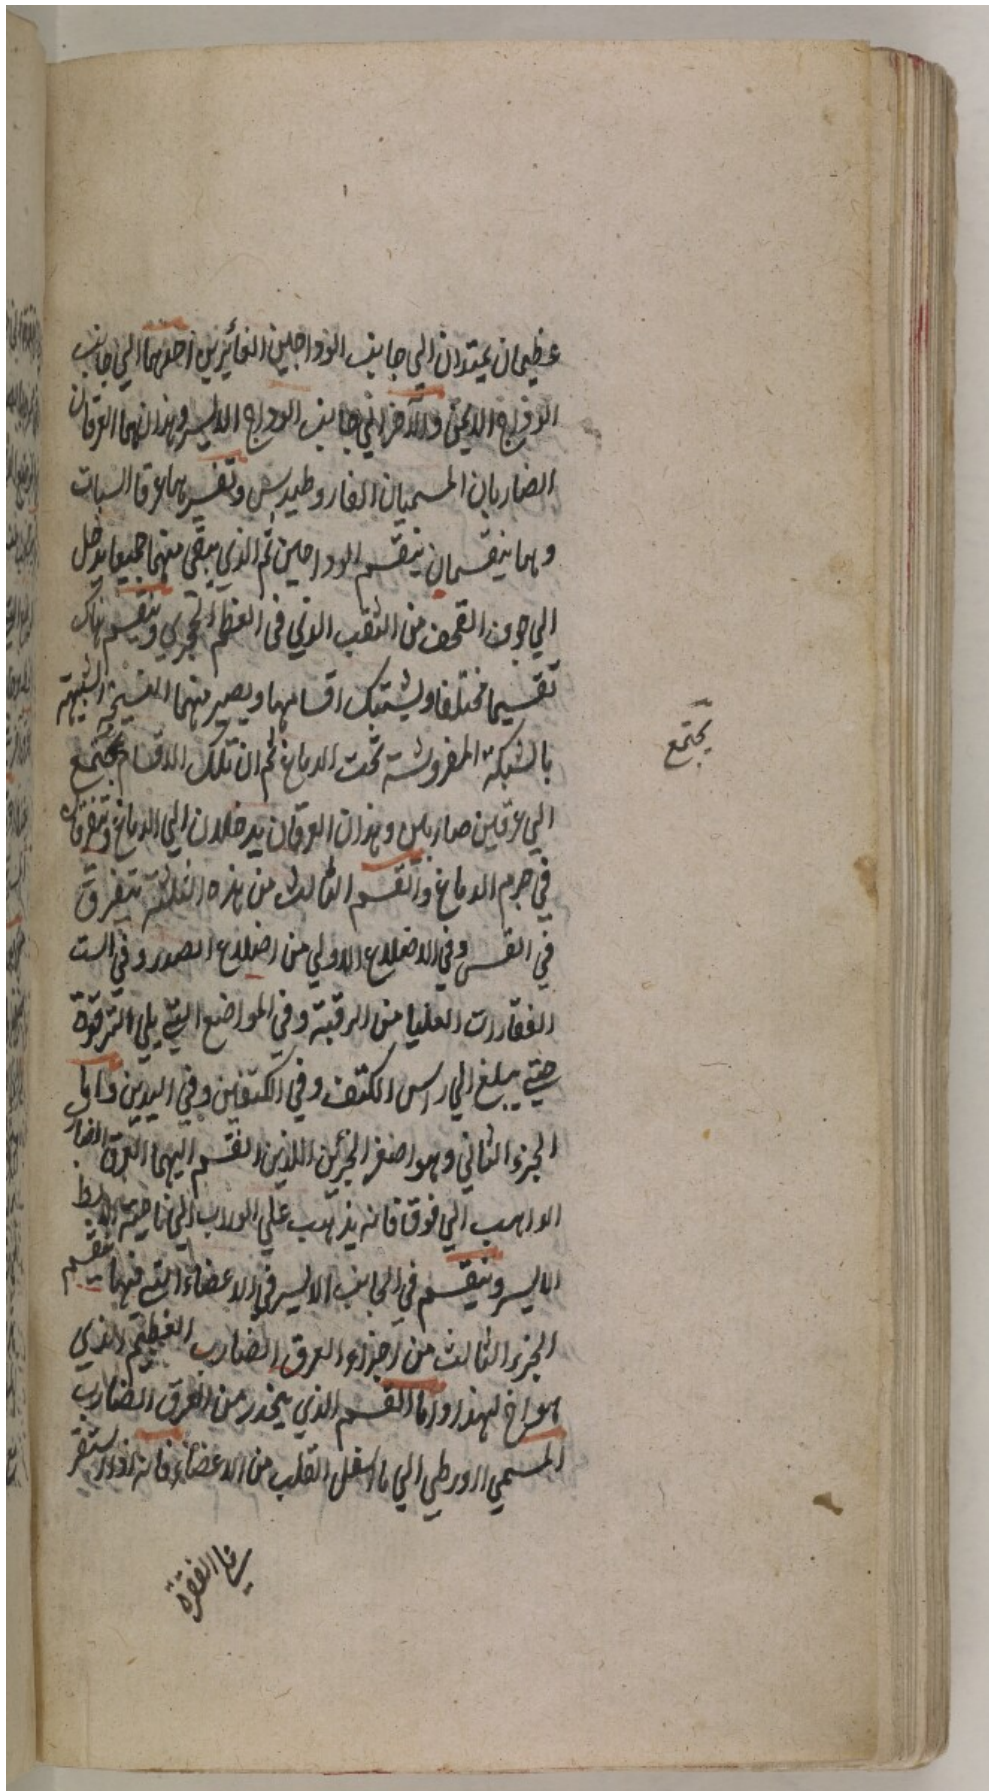 عظيمان يمتدان الي جانب الوداجين الغائرين احدهما الي جانب
الوداج الايمن والآخر الي جانب الوداج الايسر وهذان هما العرقان
الضاربان المسميان الفاروطيدس وتفسيرهما عرقا السبات
وهما ينقسمان ينقسم الوداجين ثم الذي يبقي منهما جميعا يدخل
الي جوف القحف من الثقب الذي في العظم الحجري وينقسم هناك
تقسيما مختلفا ويشتبك اقسامهما ويصير منهما النسيجة الشبيهة
بالشبكة المفروشة تحت الدماغ ثم ان تلك الاقسام يجتمع
الي عرقين ضاربين وهذان العرقان يدخلان الي الدماغ ويتفرقان
في جرم الدماغ والقسم الثالث من هذه الثلثة يتفرق
في القس وفي الاضلاع الاولي من اضلاع الصدر وفي الست
الفقارات العليا من الرقبة وفي المواضع التي يلي الترقوة
حتي يبلغ الي راس الكتف وفي الكتفين وفي اليدين واما
الجزء الثاني وهو اصغر الجزئين اللذين انقسم اليهما العرق الضارب
الذاهب الي فوق فانه يذهب علي الوراب الي ناحية الابط
الايسر وينقسم في الجانب الايسر في الاعضاء التي فيها ينقسم
الجزء الثالث من اجزاء العرق الضارب العظيم الذي
هواخ لهذا واما القسم الذي ينحدر من العرق الضارب
المسمي اورطي الي ما اسفل القلب من الاعضاء فانه اذا استقر
يجتمع
علي الفقرة